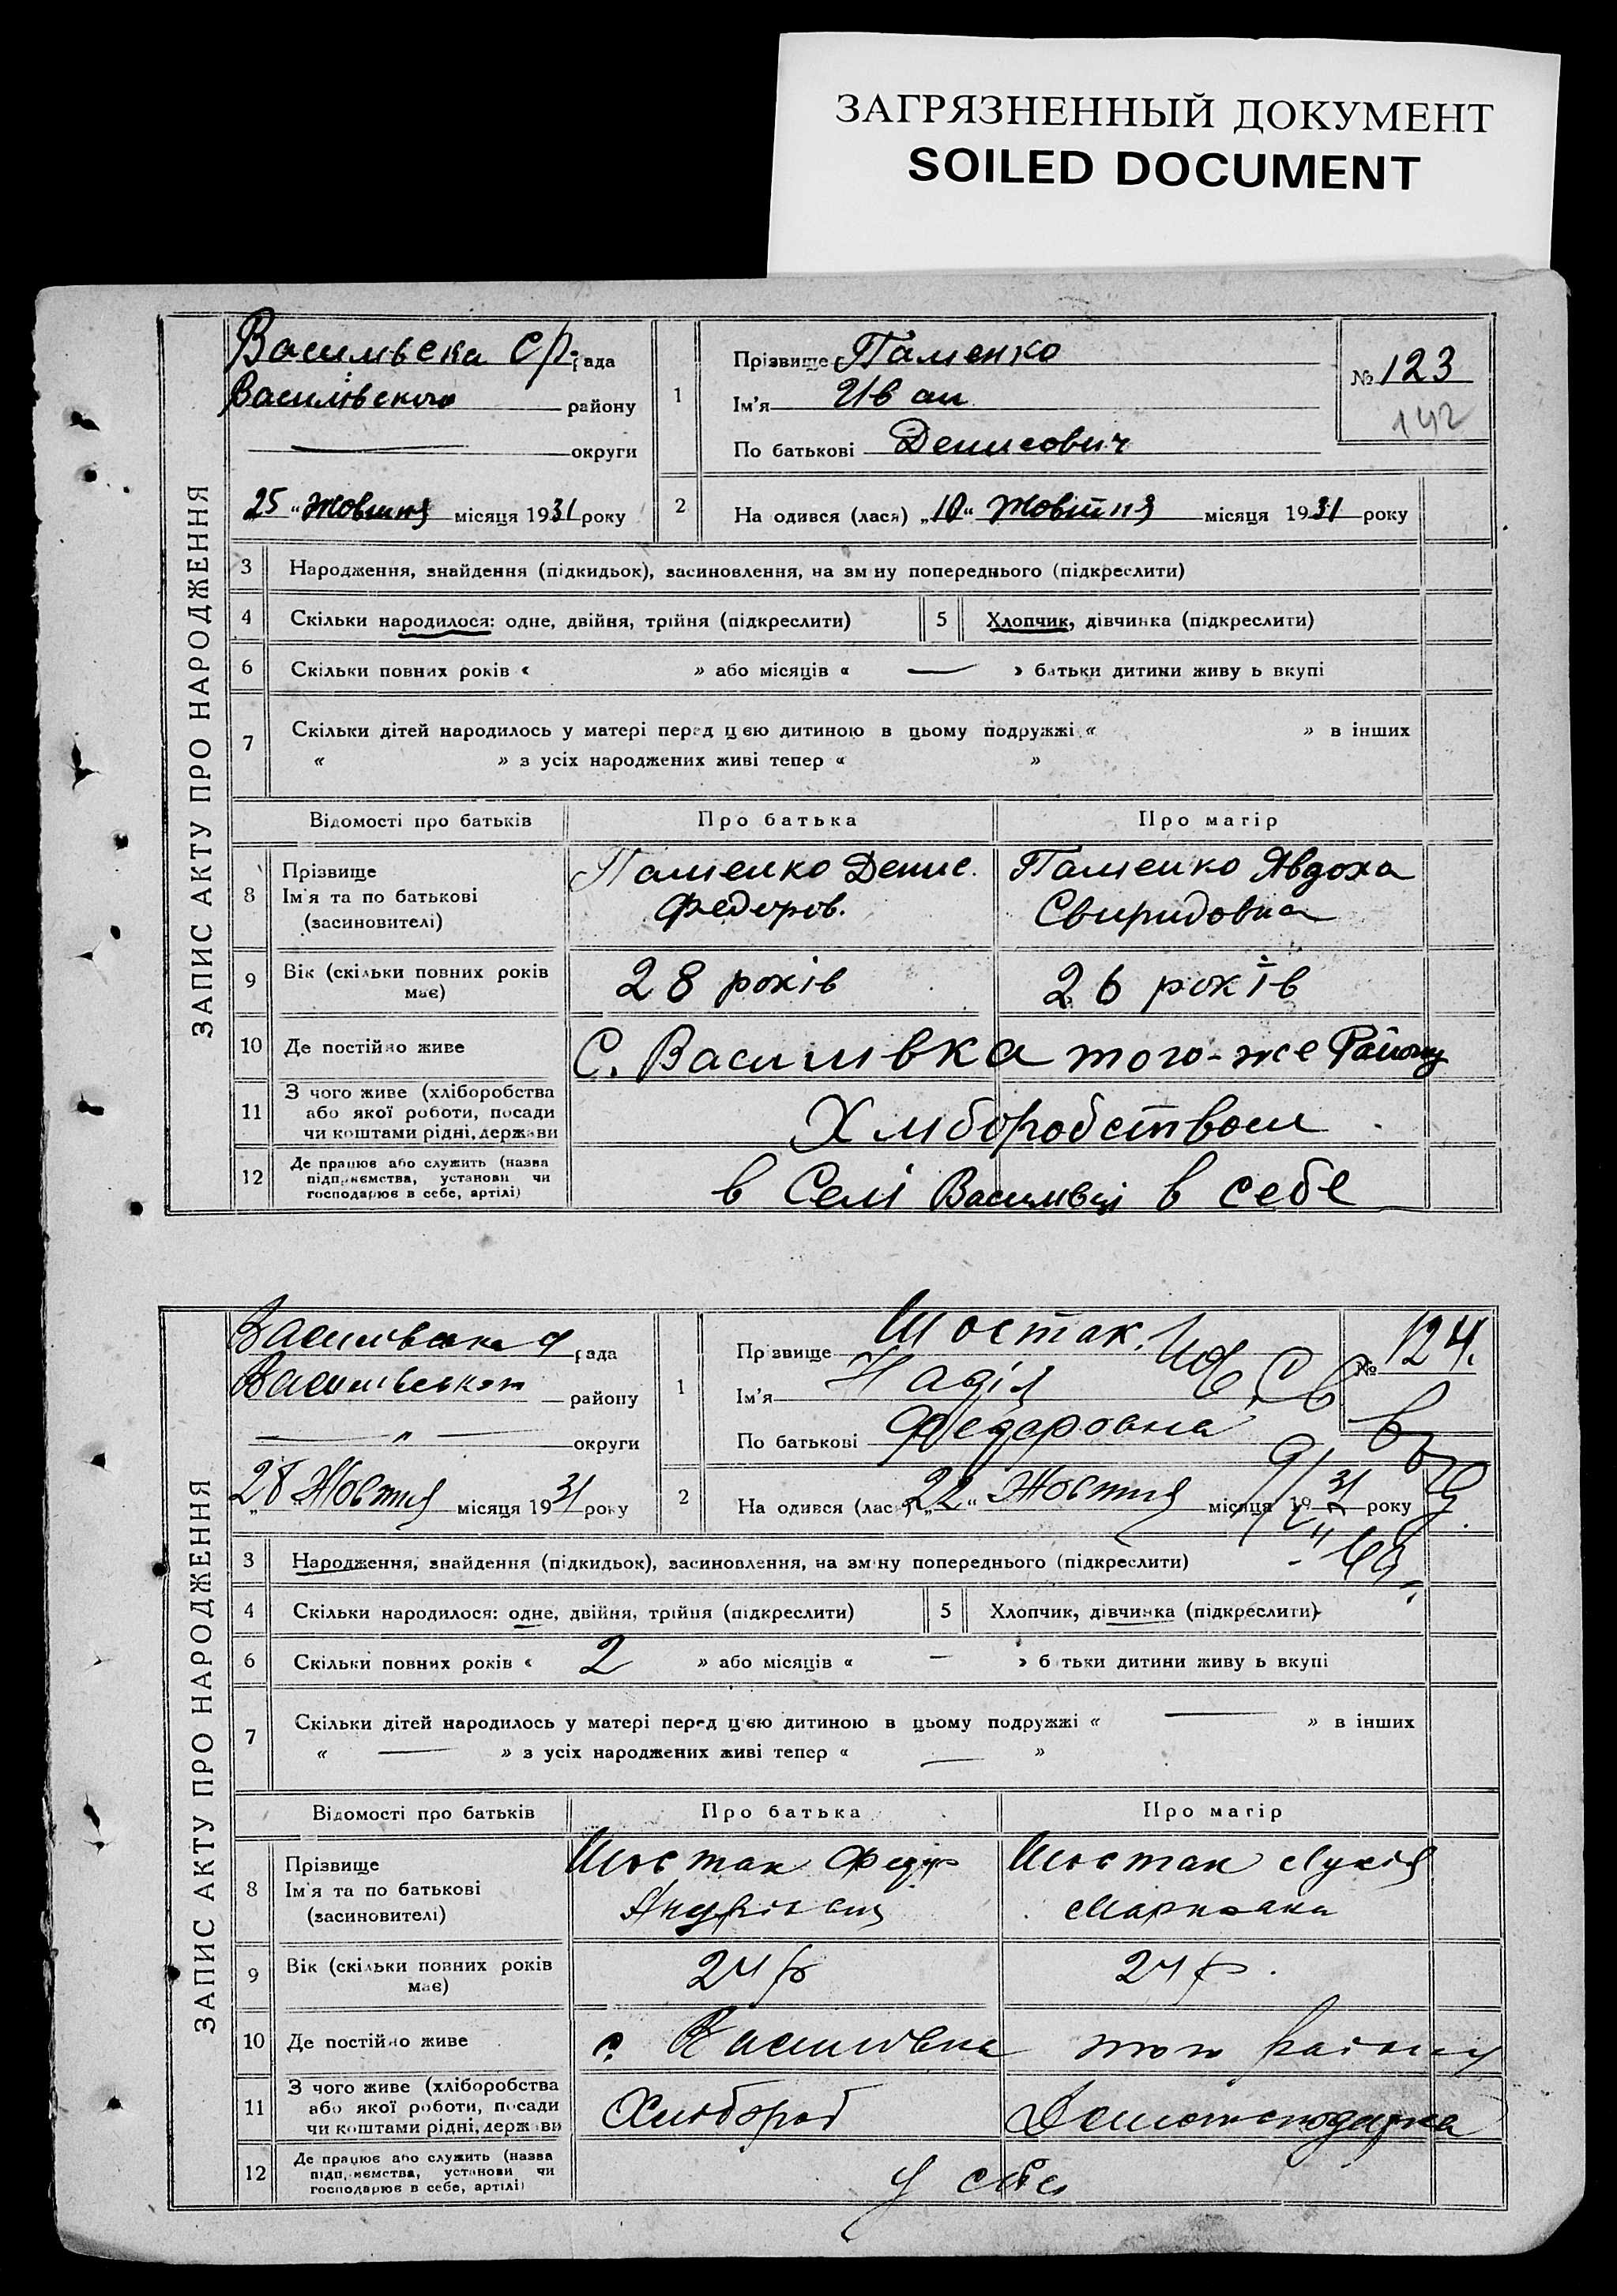 ЗАГРЯЗНЕННЫЙ ДОКУМЕНТ
SOILED DOCUMENT
ЗАПИС АКТУ ПРО НАРОДЖЕННЯ
Васильвска ср. рада
Василівского району
округи
25 " Жовтня місяця 1931 року
1
Прізвище Паленко
Ім'я Иван
По батькові Денисович
№ 123
142
2
На одився (лася) „10" Жовтня місяця 1931 року
3 Народження, знайдення (підкидьок), засиновлення, на зміну попереднього (підкреслити)
4 Скільки народилося: одне, двійня, трійня (підкреслити) 5 Хлопчик, дівчинка (підкреслити)
6 Скільки повних років « » або місяців « — » батьки дитини живу ь вкупі
7 Скільки дітей народилось у матері перед цією дитиною в цьому подружжі « » в інших
« » з усіх народжених живі тепер « »
Відомості про батьків Про батька Про матір
8 Прізвище
Ім'я та по батькові
(засиновителі)
Паленко Денис.
Федоров.
Паленко Явдоха
Свиридовна
9 Вік (скільки повних років
має)
28 років 26 років
10 Де постійно живе С. Василивка того-же Району
11 З чого живе (хліборобства
або якої роботи, посади
чи коштами рідні, держави
Хлиборобством
12 Де працює або служить (назва
підприємства, установи чи
господарює в себе, артілі)
в Селі Василивці в себе
ЗАПИС АКТУ ПРО НАРОДЖЕННЯ
рада
району
— " — округи
„28 Жовтня місяця 1931 року
1
Прізвище Шостак.
Ім'я Надія
По батькові Федоровна
№ 124.
2
На одився (лася) „22" Жовтня місяця 1931 року
3 Народження, знайдення (підкидьок), засиновлення, на зміну попереднього (підкреслити)
4 Скільки народилося: одне, двійня, трійня (підкреслити) 5 Хлопчик, дівчинка (підкреслити)
6 Скільки повних років « 2 » або місяців « — » батьки дитини живу ь вкупі
7 Скільки дітей народилось у матері перед цією дитиною в цьому подружжі « — » в інших
« — » з усіх народжених живі тепер « — »
Відомості про батьків Про батька Про матір
8 Прізвище
Ім'я та по батькові
(засиновителі)
Шостак Федір
Андрієвич
Шостак Лукія
Марковна
9 Вік (скільки повних років
має)
24 р 24 р.
10 Де постійно живе с. Василівка того району
11 З чого живе (хліборобства
або якої роботи, посади
чи коштами рідні, держави
Хлібороб Домогосподарка
12 Де працює або служить (назва
підприємства, установи чи
господарює в себе, артілі)
у себе